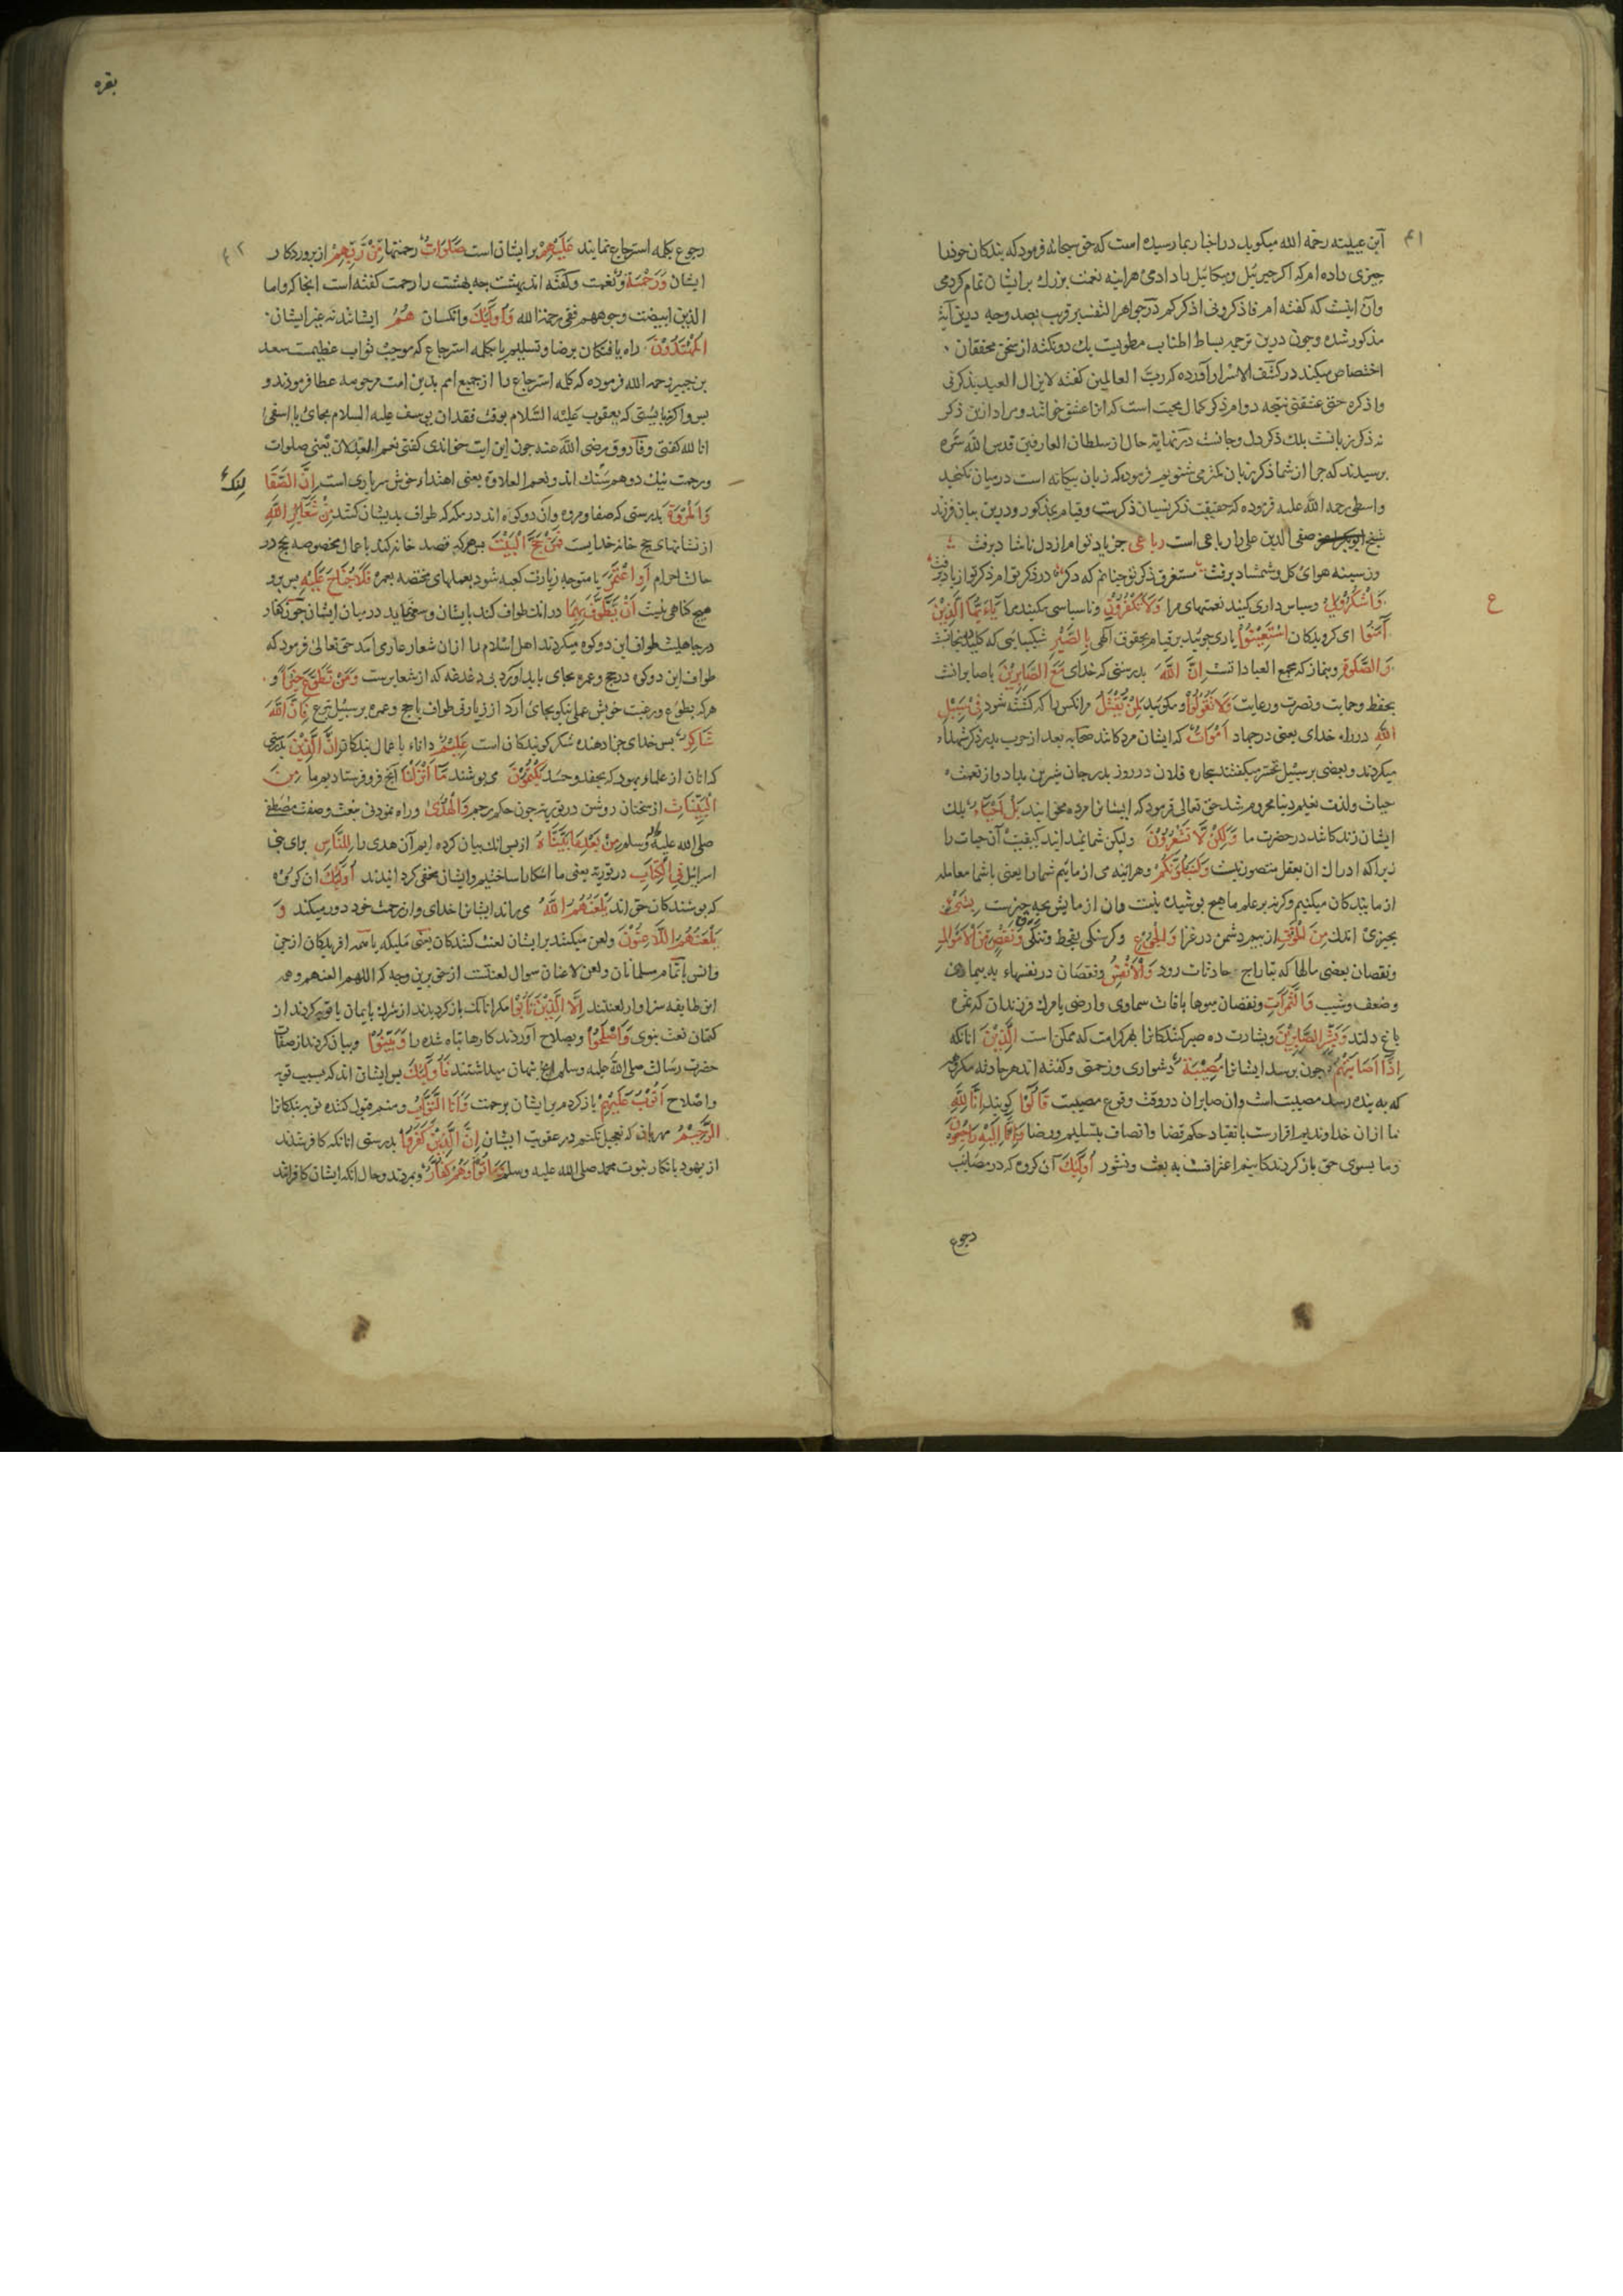 ۴۱
ابن عیینه رحمة الله میکوید در اخبار بما رسیده است که حق سبحانه فرمود که بندکان خود را
چیزی داده ام که اکر جبرئیل و میکائیل را دادمی هراینه نعمت بزرك بر ایشان تمام کردمی
وآن اینست که کفته ام فاذکرونی اذکرکم در جواهر التفسیر قریب بصد وجه درین آیة
مذکور شده وجون درین ترجمه بساط اطناب مطویست یك دو نکته از سخن محققان
اختصاص میکند در کشف الاسرار آورده که رب العالمین کفته لایزال العبد یذکرنی
واذکره حتی عشقنی نتیجه دوام ذکر کمال محبت است که انرا عشق خوانند ومراد ازین ذکر
نه ذکر زبانست بلك ذکر دل وجانست در نهایة حال از سلطان العارفین قدس الله سره
پرسیدند که جرا از شما ذکر زبان کمتر می شنویم فرمود که زبان بیکانه است درمیان نکنجد
واسطی رحمه الله علیه فرموده که حقیقت ذکر نسیان ذکرست وقیام بمذکور ودرین بیان فرزند
شیخ صفی الدین علی را رباعی است رباعی جز یاد تو ام از دل ناشاد برفت
وز سینه هوای کل وشمشاد برفت مستغرق ذکر تو جنانم که دکر در ذکر تو ام ذکر تو از یاد برفت
وَاشْكُرُوا لِي وسپاس داری کنید نعمتهای مرا وَلَا تَكْفُرُونِ وناسپاسی مکنید مرا يَا أَيُّهَا الَّذِينَ
ع
آمَنُوا ای کرویدکان اسْتَعِينُوا یاری جوئید بر قیام بحقوق الهی بِالصَّبْرِ بشکیبایی که کلید نجاتست
وَالصَّلٰوةِ وبنماز که مجمع العباداتست إِنَّ اللّٰهَ بدرستی که خدای مَعَ الصَّابِرِينَ با صابرانست
بحفظ وحمایت ونصرت ورعایت وَلَا تَقُولُوا ومکوئید لِمَنْ يُقْتَلُ مر انکس را که کشته شود فِي سَبِيلِ
اللّٰهِ در راه خدای یعنی در جهاد أَمْوَاتٌ که ایشان مردکانند صحابه بعد از حرب بدر ذکر شهداء
میکردند وبعضی بر سبیل تحسر میکفتند بیجاره فلان در روز بدر جان شیرین بداد واز نعمت
حیات ولذت نعیم دنیا محروم شد حق تعالی فرمود که ایشانرا مرده مخوانید بَلْ أَحْيَاءٌ بلك
ایشان زندکانند در حضرت ما وَلٰكِنْ لَا تَشْعُرُونَ ولیکن شما نمیدانید کیفیت آن حیات را
زیرا که ادراك ان بعقل متصور نیست وَلَنَبْلُوَنَّكُمْ وهراینه می ازمایم شما را یعنی با شما معامله
ازمایندکان میکنیم وکرنه بر علم ما هیج پوشیده نیست وان ازمایش بجه جیزست بِشَيْءٍ
بجیزی اندك مِنَ الْخَوْفِ از بیم دشمن در غزا وَالْجُوعِ وکرسنکی بقحط وتنکی وَنَقْصٍ مِنَ الْأَمْوَالِ
ونقصان بعضی مالها که بتاراج حادثات رود وَالْأَنْفُسِ ونقصان در نفسها به بیماری
وضعف وشیب وَالثَّمَرَاتِ ونقصان میوها بافات سماوی وارضی یا مرك فرزندان که ثمره
باغ دلند وَبَشِّرِ الصَّابِرِينَ وبشارت ده صبر کنندکانرا بهر کرامت که ممکن است الَّذِينَ انانکه
إِذَا أَصَابَتْهُمْ جون برسد ایشانرا مُصِيبَةٌ دشواری وزحمتی وکفته اند هر حادثه مکروه
که به بنده رسد مصیبت است وان صابران در وقت وقوع مصیبت قَالُوا کویند إِنَّا لِلّٰهِ
ما از ان خداوندیم اقرارست بانقیاد حکم قضا واتصاف بتسلیم ورضا وَإِنَّا إِلَيْهِ رَاجِعُونَ
وما بسوی حق باز کردندکانیم اعترافست به بعث ونشور أُولٰئِكَ آن کروه که در مصائب
رجوع
بقره
۴۲
رجوع بکلمه استرجاع نمایند عَلَيْهِمْ بر ایشان است صَلَوَاتٌ رحمتها مِنْ رَبِّهِمْ از پروردکار
ایشان وَرَحْمَةٌ ونعمت وکفته اند بهشت جه بهشت را رحمت کفته است انجا که واما
الذین ابیضت وجوههم ففی رحمة الله وَأُولٰئِكَ وانکسان هُمُ ایشانند نه غیر ایشان
الْمُهْتَدُونَ راه یافتکان برضا وتسلیم یا بکلمه استرجاع که موجب ثواب عظیمست سعد
بن جبیر رحمه الله فرموده که کلمه استرجاع را از جمیع امم بدین امت مرحومه عطا فرمودند و
بس واکر بایستی که یعقوب علیه السلام بوقت فقدان یوسف علیه السلام بجای یا اسفی
انا لله کفتی وفاروق رضی الله عنه جون این ایت خواندی کفتی نعم العدلان یعنی صلوات
ورحمت نیك دو هم سنك اند ونعم العلاوة یعنی اهتداء خوش سرباری است إِنَّ الصَّفَا
وَالْمَرْوَةَ بدرستی که صفا ومروه وان دو کوه اند در مکه که طواف بدیشان کنند مِنْ شَعَائِرِ اللّٰهِ
از نشانهای حج خانه خدایست فَمَنْ حَجَّ الْبَيْتَ پس هر که قصد خانه کند با عمال مخصوصه بحج در
حالت احرام أَوِ اعْتَمَرَ یا متوجه زیارت کعبه شود بعملهای مختصه بعمره فَلَا جُنَاحَ عَلَيْهِ پس برو
هیج کناهی نیست أَنْ يَطَّوَّفَ بِهِمَا در انك طواف کند بایشان وسعی نماید درمیان ایشان جون کفار
در جاهلیت طواف این دو کوه میکردند اهل اسلام را از ان شعار عاری امد حق تعالی فرمود که
طواف این دو کوه در حج وعمره بجای باید اورد بی دغدغه که از شعایرست وَمَنْ تَطَوَّعَ خَيْرًا و
هر که بطوع ورغبت خویش عملی نیکو بجای ارد از زیارتی طواف یا حج وعمره بر سبیل تبرع فَإِنَّ اللّٰهَ
شَاكِرٌ پس خدای جزا دهنده شکر کویندکان است عَلِيمٌ داناء باعمال بندکان إِنَّ الَّذِينَ بدرستی
که انان از علماء یهود که بحقد وحسد يَكْتُمُونَ می پوشند مَا أَنْزَلْنَا آنج فرو فرستادیم ما مِنَ
الْبَيِّنَاتِ از سخنان روشن در توریة جون حکم رجم وَالْهُدٰى وراه نمودنی بنعت وصفت مصطفی
صلی الله علیه وسلم مِنْ بَعْدِ مَا بَيَّنَّاهُ از پس انك بیان کرده ایم آن هدی را لِلنَّاسِ برای بنی
اسرائیل فِي الْكِتَابِ در توریة یعنی ما اشکارا ساختیم وایشان مخفی کردانیدند أُولٰئِكَ ان کروه
که پوشندکان حق اند يَلْعَنُهُمُ اللّٰهُ می راند ایشانرا خدای واز رحمت خود دور میکند وَ
يَلْعَنُهُمُ اللَّاعِنُونَ ولعن میکنند بر ایشان لعنت کنندکان یعنی ملیکه یا همه افریدکان از جن
وانس یا تمام مسلمانان ولعن لاعنان سوال لعنتست از حق برین وجه که اللهم العنهم وهمه
این طایفه سزاوار لعنتند إِلَّا الَّذِينَ تَابُوا مکر انانك باز کردیدند از شرك بایمان یا توبه کردند از
کتمان نعت نبوی وَأَصْلَحُوا وبصلاح آوردند کارها تباه شده را وَبَيَّنُوا وبیان کردند از صفات
حضرت رسالت صلی الله علیه وسلم انج نهان میداشتند فَأُولٰئِكَ پس ایشان اند که بسبب توبه
واصلاح أَتُوبُ عَلَيْهِمْ باز کردم بر ایشان برحمت وَأَنَا التَّوَّابُ ومنم قبول کننده توبه بندکانرا
الرَّحِيمُ مهربان که تعجیل نکنم در عقوبت ایشان إِنَّ الَّذِينَ كَفَرُوا بدرستی انانکه کافر شدند
از یهود بانکار نبوت محمد صلی الله علیه وسلم وَمَاتُوا وَهُمْ كُفَّارٌ وبمردند وحال انکه ایشان کافرانند